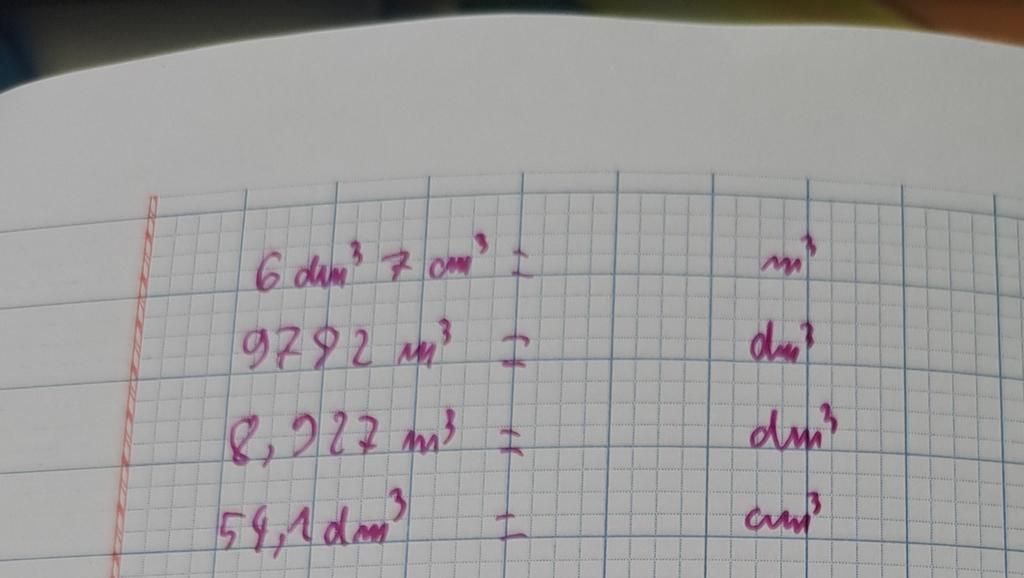 6 dm³ 7 cm³ = m³
9792 m³ = dm³
8,927 m³ = dm³
54,1 dm³ = cm³